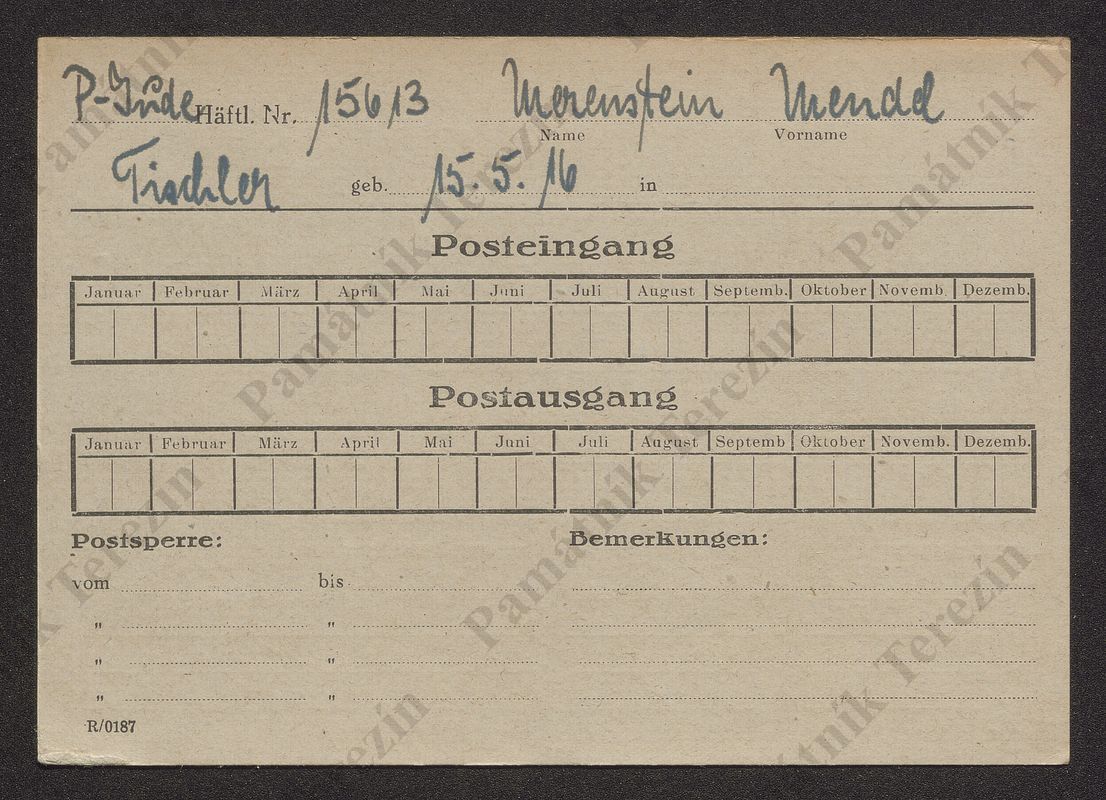 P-Jude Häftl. Nr. 15613 Morenstein Mendel
Name Vorname
Tischler geb. 15. 5. 16 in
Posteingang
Januar Februar März April Mai Juni Juli August Septemb. Oktober Novemb. Dezemb.
Postausgang
Januar Februar März April Mai Juni Juli August Septemb Oktober Novemb. Dezemb.
Postsperre: Bemerkungen:
vom bis
" "
" "
" "
R/0187
Památník Terezín